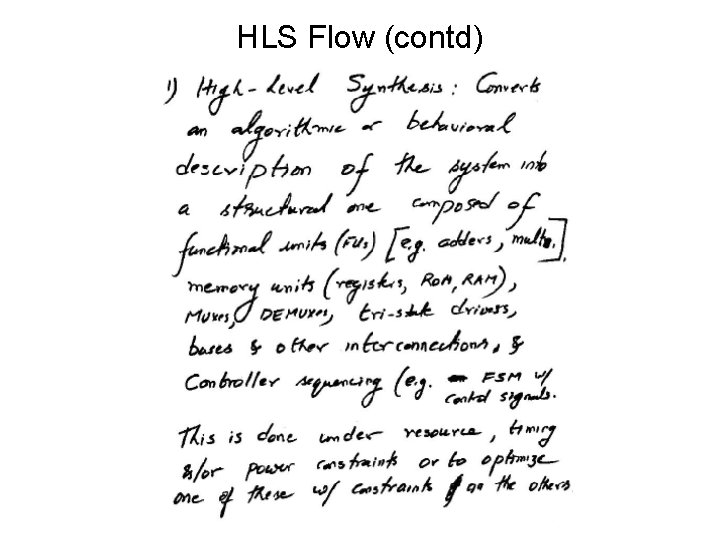 HLS Flow (contd)
1) High-Level Synthesis: Converts
an algorithmic or behavioral
description of the system into
a structural one composed of
functional units (FUs) [e.g. adders, mults.],
memory units (registers, ROM, RAM),
Muxes, DEMUXes, tri-state drivers,
buses & other interconnections, &
Controller sequencing (e.g. FSM w/
control signals.
This is done under resource, timing
&/or power constraints or to optimize
one of these w/ constraints on the others